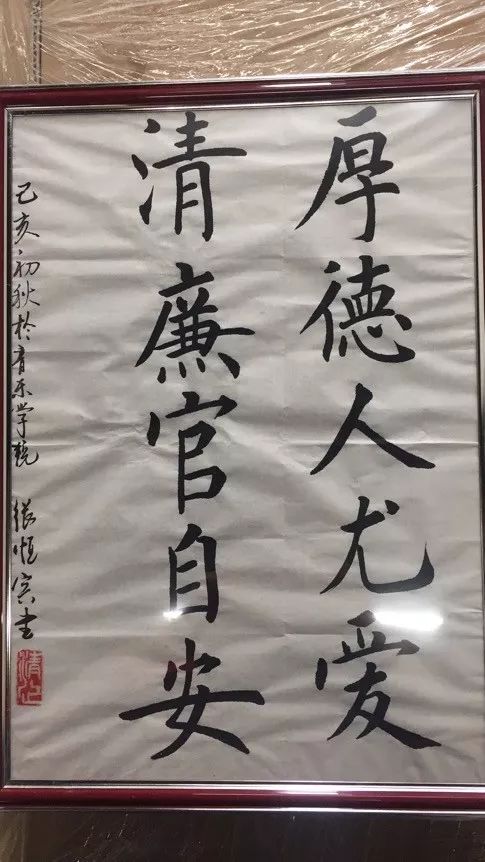 厚德人尤爱
清廉官自安
己亥初秋於音乐学院 张恒宾书
清心